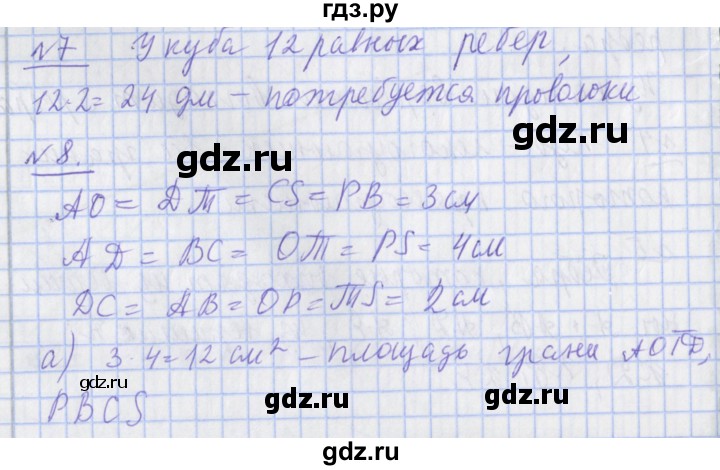 гдз.ру
№7 У куба 12 равных ребер,
12·2=24 дм — потребуется проволоки
№8.
gdz.ru gdz.ru
АО = DT = CS = PB = 3 см
АD = BC = OT = PS = 4 см
DC = AB = OP = TS = 2 см
а) 3·4=12 см² — площадь грани AOTD,
gdz.ru
PBCS
gdz.ru gdz.ru
gdz.ru